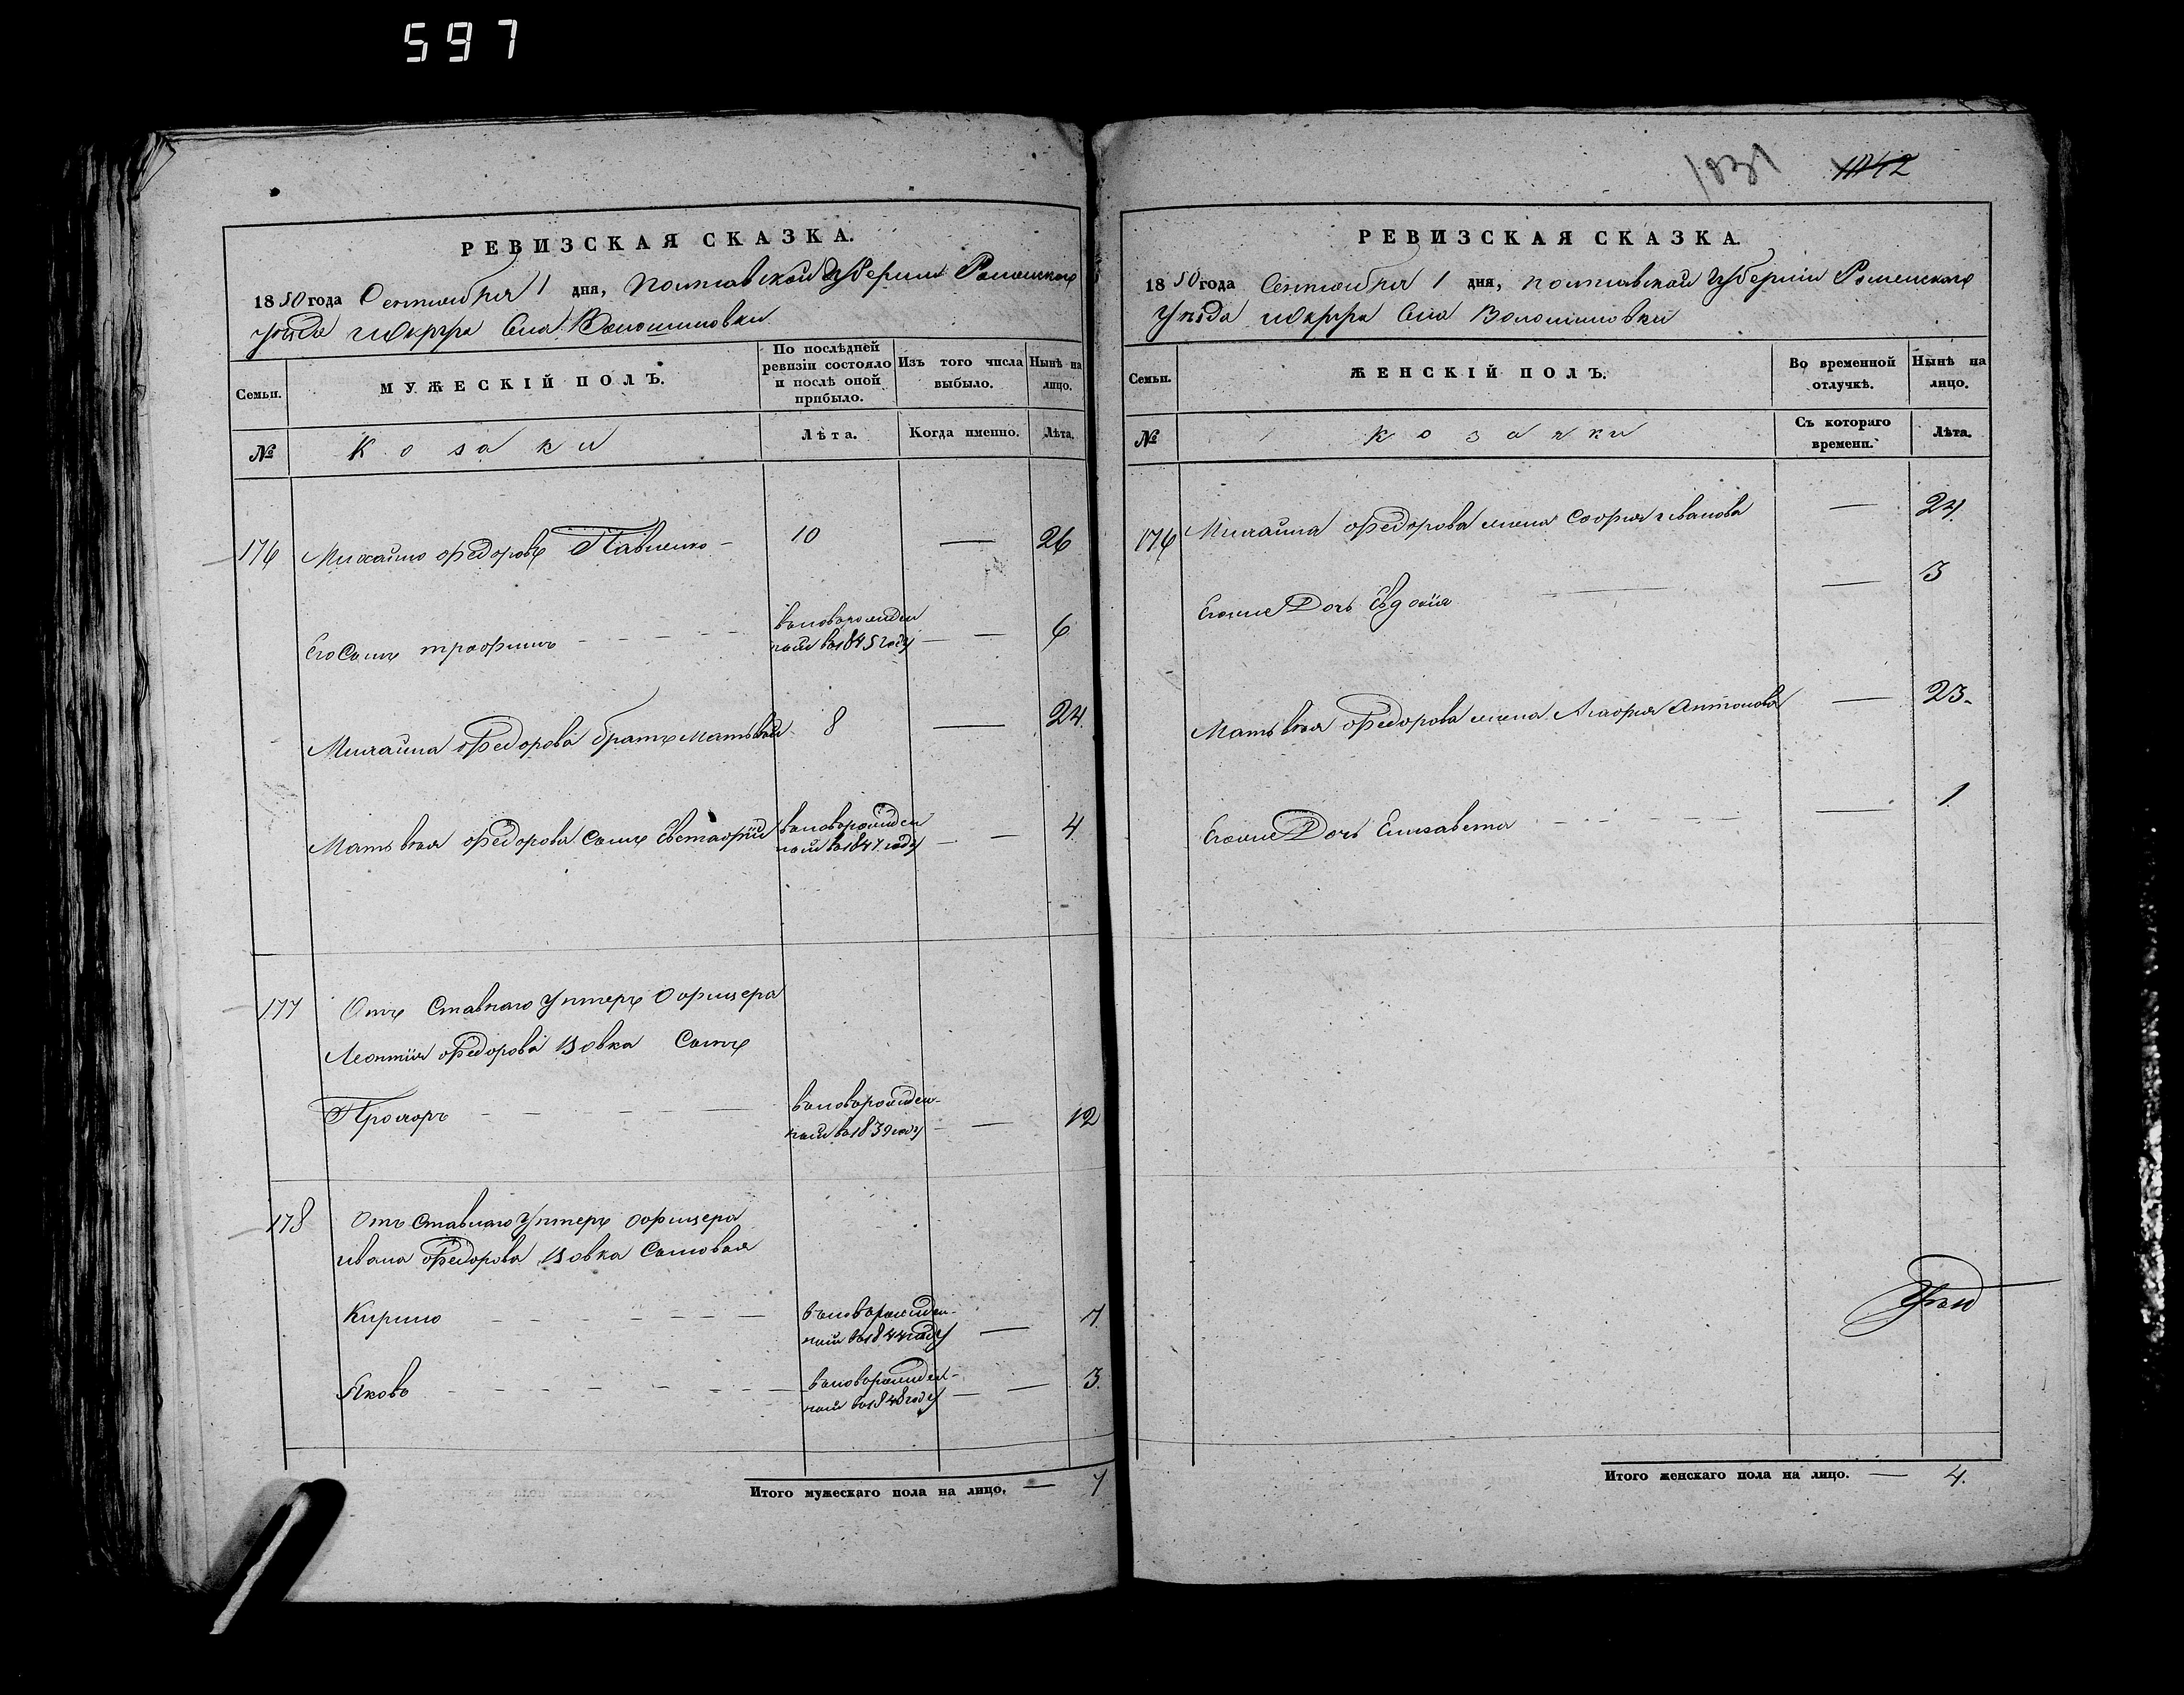 597
РЕВИЗСКАЯ СКАЗКА.
1850 года Сентября 1 дня, Полтавской Губернии Роменского
уезда округа Села Волошиновки
Семьи.
МУЖЕСКІЙ ПОЛЪ.
По послѣдней ревизіи состояло и послѣ оной прибыло.
Изъ того числа выбыло.
Нынѣ на лицо.
№
Козаки
Лѣта.
Когда именно.
Лѣта.
176 Михайло Федоровъ Павленко 10 — 26
Его Сынъ Трофимъ
новорожден
ный въ 1845 году — 6
Михайла Федорова братъ Матвѣй 8 — 24.
Матвѣя Федорова сынъ Евстафій
новорожден
ный въ 1847 году — 4
177 Отъ Ставнаго Унтеръ Офицера
Леонтія Федорова Вовка Сынъ
Прохоръ
новорожден-
ный въ 1839 году — 12
178 Отъ Ставнаго Унтеръ Офицера
Ивана Федорова Вовка Сыновья
Кирило
новорожден-
ный въ 1844 году — 7
Яковъ
новорожден-
ный въ 1848 году — 3.
Итого мужескаго пола на лицо. — 7
1031 1042
РЕВИЗСКАЯ СКАЗКА.
1850 года Сентября 1 дня, Полтавской Губерніи Роменскаго
Уѣзда округа Села Волошиновки
Семьи.
ЖЕНСКІЙ ПОЛЪ.
Во временной отлучкѣ.
Нынѣ на лицо.
№
Козачки
Съ котораго времени.
Лѣта.
176 Михайла Федорова жена Софія Иванова — 24.
Егоже Дочь Евдокія — 3
Матвѣя Федорова жена Агафія Антонова — 23.
Егоже Дочь Елисавета — 1
Итого женскаго пола на лицо. — 4.